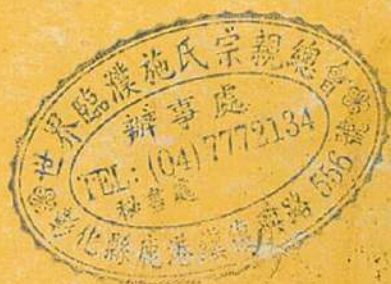 世界臨濮施氏宗親總會
辦事處
TEL: (04) 7772134
秘書處
彰化縣鹿港鎮 556號